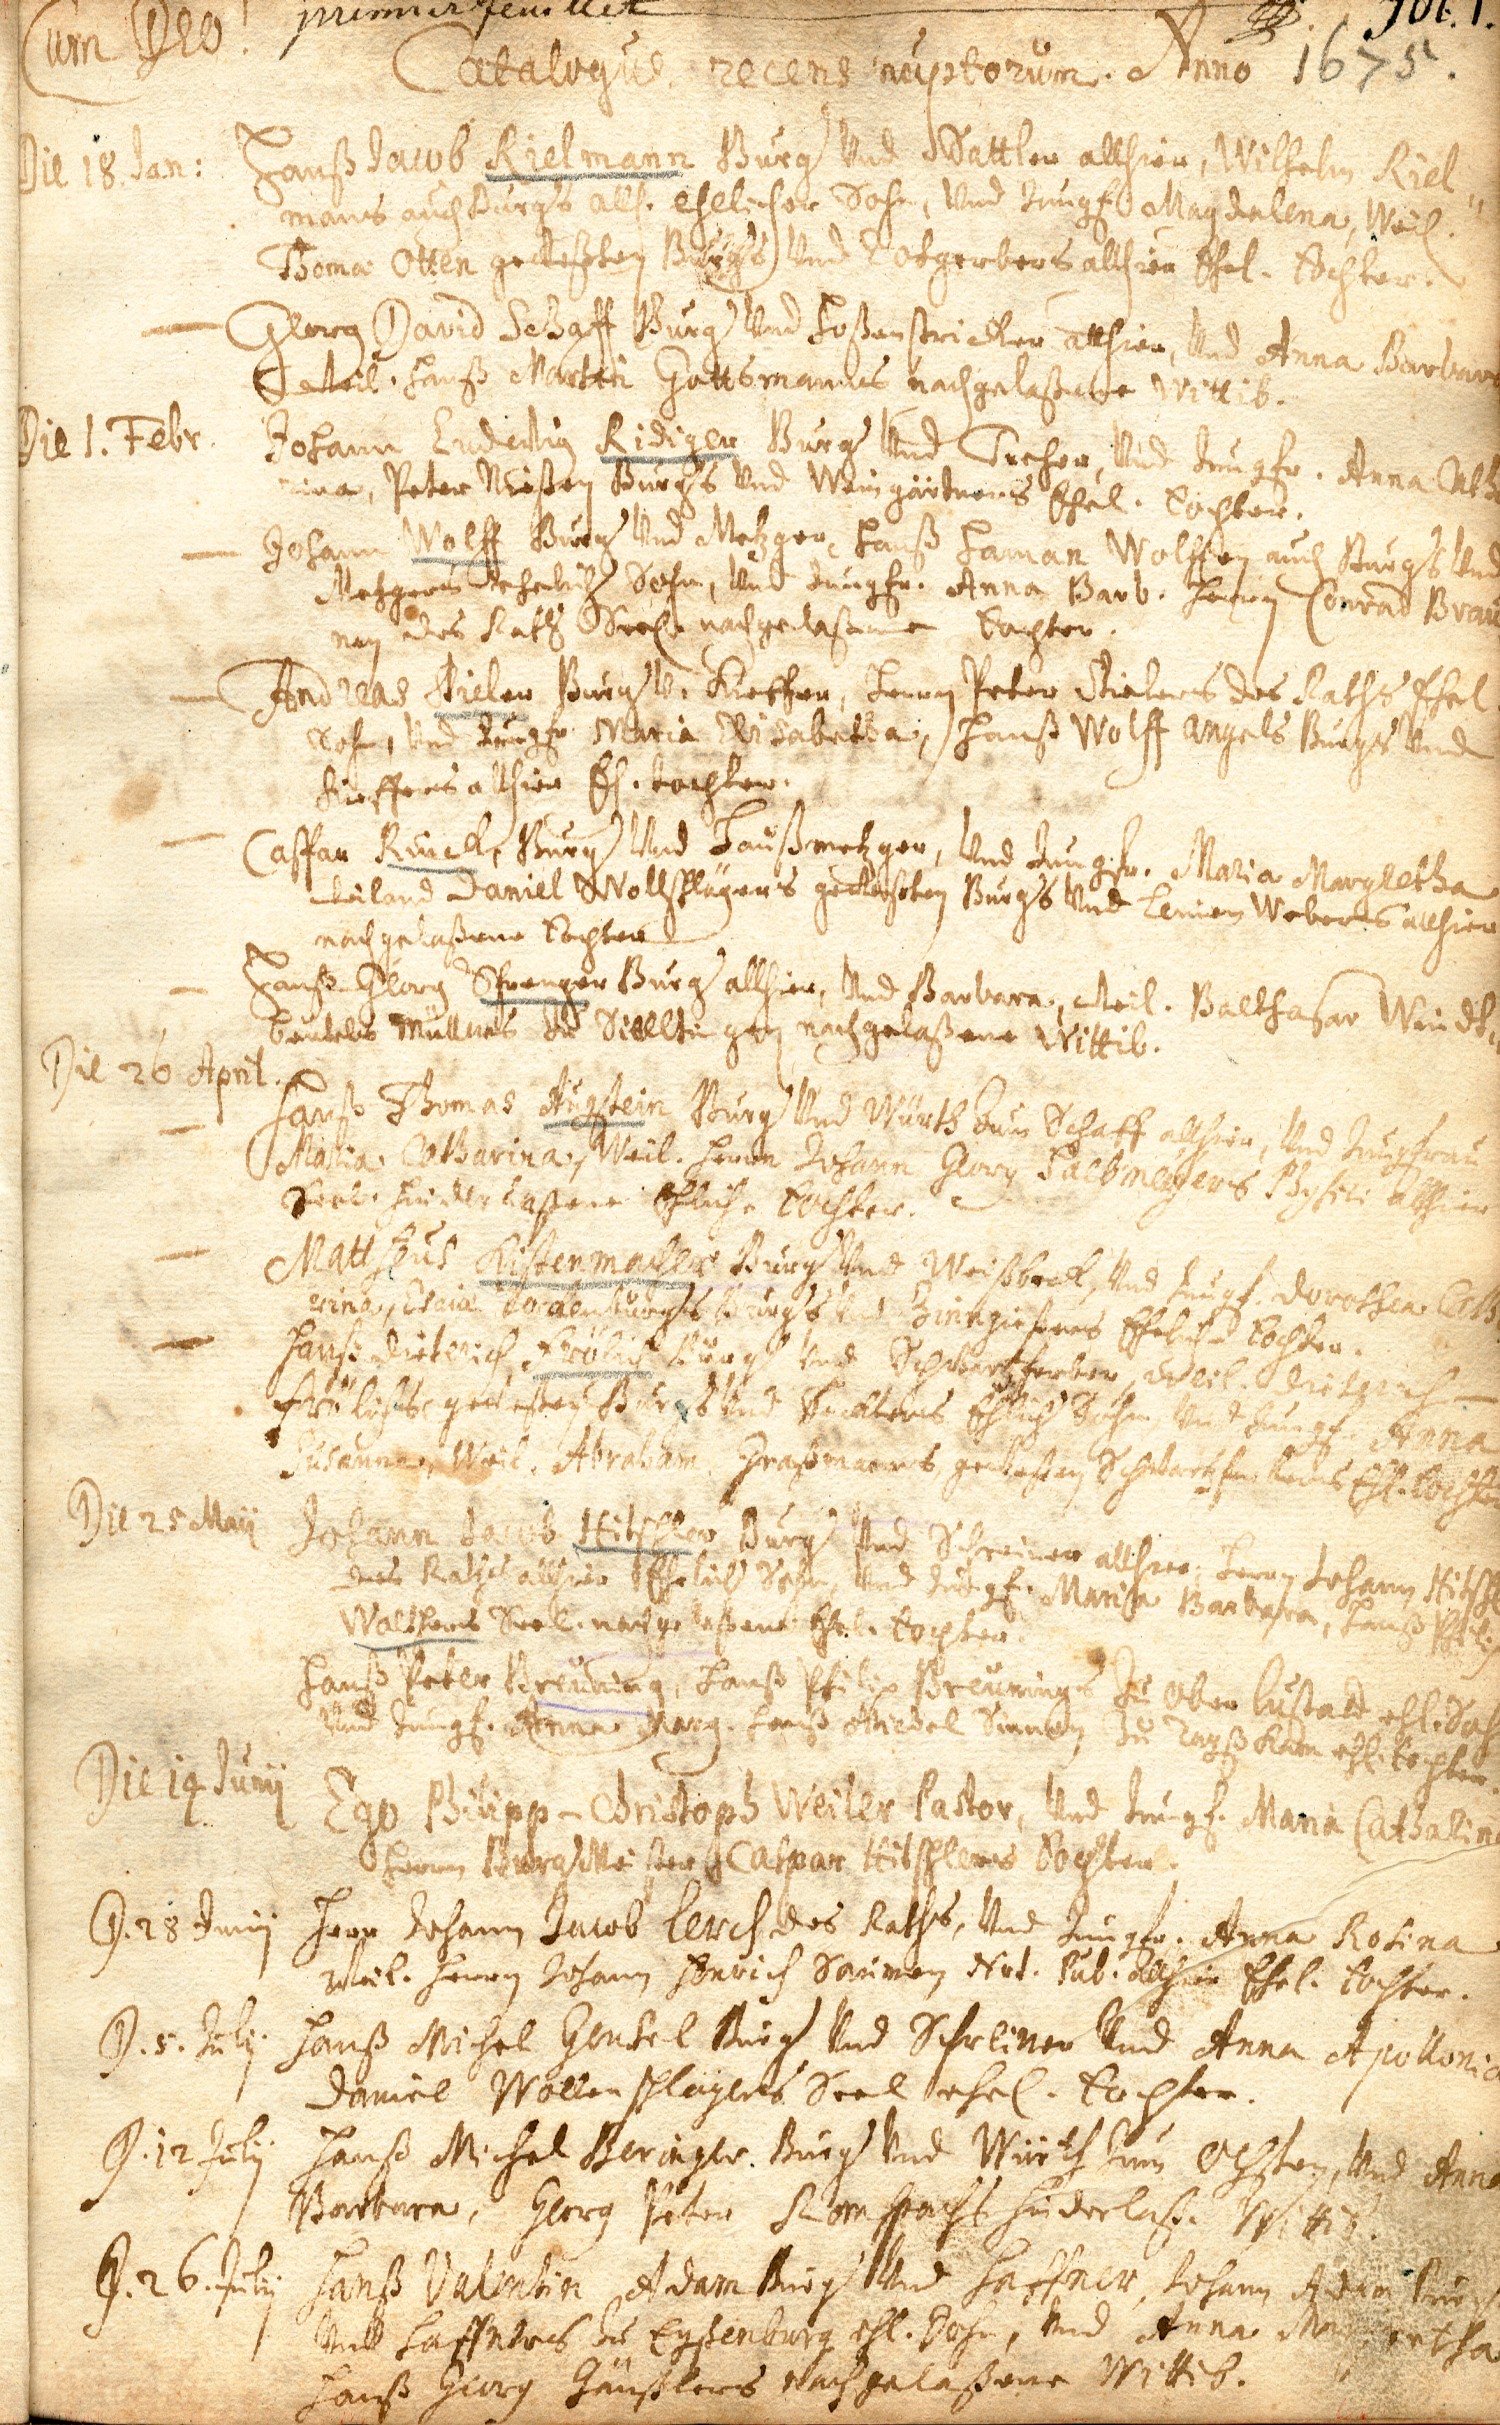 Cum Deo! premier feuillet fol. 1.
Catalogus recens nuptorum. Anno 1675.
Die 18. Jan: Hanß Jacob Kielmann Burg. Und Sattler allhier, Wilhelm Kiel-
mans auch Burgs allh. ehelicher Sohn, Und Jungf. Magdalena, Weil.
Thomæ Otten geweßten Burgs Und Rotgerbers allhier Ehel. Tochter.
— Georg David Schaff Burg. Und Hoßenstricker allhier, Und Anna Barbara
Weil. Hanß Martin Gottsmanns nachgelaßene Wittib.
Die 1. Febr. Johann Ludwig Ridiger Burg. Und Becher, Und Jungfr. Anna Cath
rina, Peter Nießen Burgs Und Weingärtners Ehel. Tochter.
— Johann Wolff Burg. Und Metzger, Hanß Haman Wolffen auch Burgs Und
Metzgers Ehelich Sohn, Und Jungfr. Anna Barb. Herrn Conrad Brau
nen des Raths Seel. nachgelaßene Tochter.
— Andreas Stieler Burg. U. Kieffer, Herrn Peter Stielers des Raths Ehel.
Sohn, Und Jungfr. Maria Elisabetha, Hanß Wolff Angels Burgs Und
Kieffers allhier Eh. Tochter.
— Caspar Ruck, Burg. Und Haußmetzger, Und Jungfr. Maria Margretha
Weiland Daniel Wollschlägers geweßten Burgs Und Leinen Webers allhier
nachgelaßene Tochter
— Hanß Georg Sprenger Burg. allhier, Und Barbara, Weil. Balthasar Windt
beutels Müllers zu nachgelaßene Wittib.
Die 26 April.
— Hanß Thomas Augstein Burg. Und Würth Zum Schaff allhier, Und Jungfrau
Maria Catharina, Weil. Herrn Johann Georg Physici allhier
Seel. hinderlaßene Ehlich. Tochter.
— Matthæus Kistenmacher Burg. Und Weißbeck, Und Jungf. Dorothea Cath
erina, Esaiæ Burgs Und Zinngießers Ehelich. Tochter.
— Hanß Dieterich Frölich Burg. Und Schwartzferber, Weil. Dieterich
Frölichs geweßten Burgs Und Ehlich Sohn, Und Jungf. Anna
Susanna, Weil. Abraham Graßmaers geweßten Schwartzferbers Ehl. Tochter
Die 25 Maij Johann Jacob Hitschler Burg. Und Schreiner allhier, Herrn Johann Hitschl
des Raths allhier Ehelich Sohn, Und Jungf. Maria Barbara, Hanß Philip
Walthers Seel. nachgelaßene Ehel. Tochter.
Hanß Peter Breüning, Hanß Philip Breünings Zu Ober Lustatt ehl. Sohn
Und Jungf. Anna Marg. Hanß Michel Zu ehl. Tochter.
Die 14 Junij Ego Philipp-Christoph Weiler Pastor, Und Jungf. Maria Catharina
Herrn BurgMeister Caspar Hitschlers Tochter.
D. 28 Junij Herr Johann Jacob Lerch des Raths, Und Jungfr. Anna Rosina
Weil. Herrn Johann Henrich Not. Pub. allhier Ehel. Tochter.
D. 5. Julij Hanß Michel Genkel Burg. Und Schreiner Und Anna Apollonia
Daniel Wollenschlagers Seel ehel. Tochter.
D. 12 Julij Hanß Michel Beringer Burg. Und Würth Zum Ochsen, Und Anna
Barbara, Georg Peter Romspachs hinderlaß. Wittib.
D. 26. Julij Hanß Valentin Adam Burg. Und Haffner, Johann Adam Burgs
Und Haffners zu Eyßenburg ehl. Sohn, Und Anna Margretha
Hanß Georg Häußlers nachgelaßene Wittib.